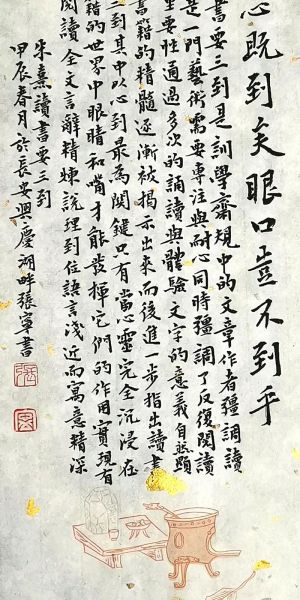 心既到矣眼口豈不到乎
書要三到是訓學齋規中的文章作者疆調讀
是一門藝術需要專注與耐心同時疆調了反復閱讀
要性通過多次的誦讀與體驗文字的意義自然顯
書籍的精髓逐漸被揭示出來而後進一步指出讀書
三到其中以心到最為關鍵只有當心靈完全沉浸在
籍的世界中眼睛和嘴才能發揮它們的作用實現有
閱讀全文言辭精煉說理到位語言淺近而寓意精深
朱熹讀書要三到
甲辰春月於長安興慶湖畔張寧書